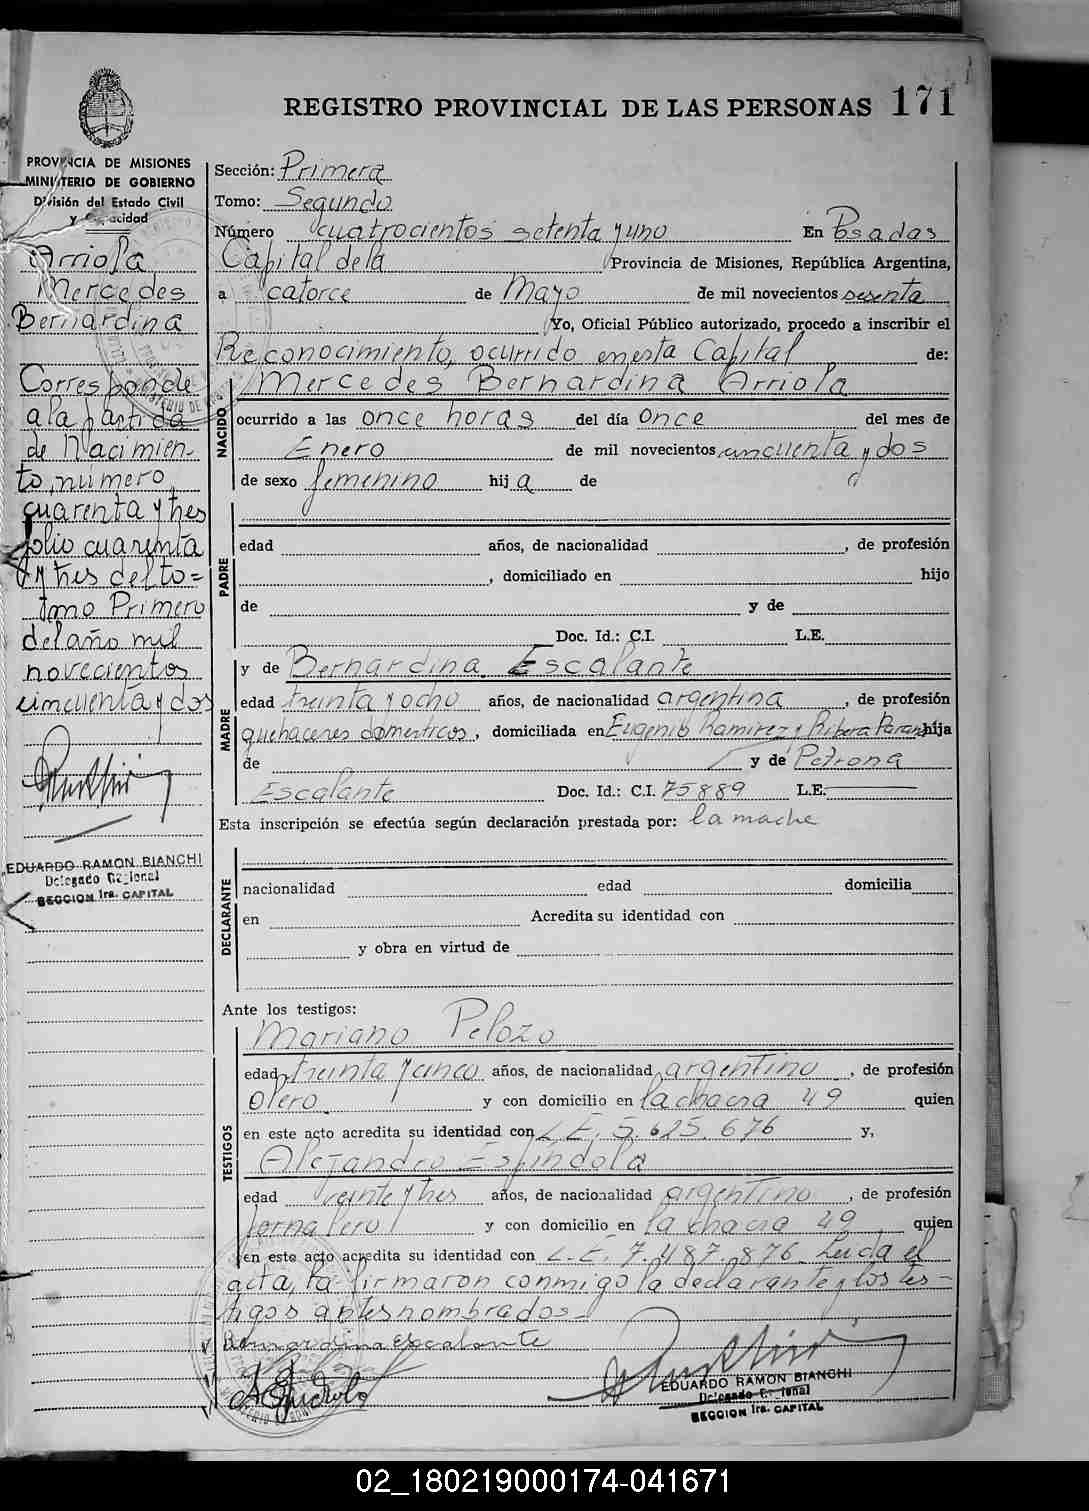 REGISTRO PROVINCIAL DE LAS PERSONAS 171
PROVINCIA DE MISIONES
MINISTERIO DE GOBIERNO
División del Estado Civil
y Capacidad
Arriola
Mercedes
Bernardina
Corresponde
a la partida
de Nacimien-
to, número
cuarenta y tres
folio cuarenta
y tres del to=
tomo Primero
del año mil
novecientos
cincuenta y dos
EDUARDO RAMON BIANCHI
Delegado Regional
SECCION 1ra. CAPITAL
Sección: Primera
Tomo: Segundo
Número cuatrocientos setenta y uno En Posadas
Capital de la Provincia de Misiones, República Argentina,
a catorce de Mayo de mil novecientos sesenta
Yo, Oficial Público autorizado, procedo a inscribir el
Reconocimiento, ocurrido en esta Capital de:
NACIDO
Mercedes Bernardina Arriola
ocurrido a las once horas del día once del mes de
Enero de mil novecientos cincuenta y dos
de sexo femenino hija de
PADRE
edad años, de nacionalidad , de profesión
, domiciliado en hijo
de y de
Doc. Id.: C.I. L.E.
MADRE
y de Bernardina Escalante
edad treinta y ocho años, de nacionalidad argentina , de profesión
quehaceres domesticos, domiciliada en Eugenio Ramirez y Ribera Parana hija
de y de Petrona
Escalante Doc. Id.: C.I. 75889 L.E.
Esta inscripción se efectúa según declaración prestada por: la madre
DECLARANTE
nacionalidad edad domicilia
en Acredita su identidad con
y obra en virtud de
Ante los testigos:
TESTIGOS
Mariano Pelozo
edad treinta y cinco años, de nacionalidad argentino , de profesión
y con domicilio en la chacra 49 quien
en este acto acredita su identidad con L.E. 5.625.676 y,
Alejandro Espíndola
edad veinte y tres años, de nacionalidad argentino , de profesión
jornalero y con domicilio en la chacra 49 quien
en este acto acredita su identidad con L.E. 7.487.876 Leida el
acta, la firmaron conmigo la declarante y los tes-
tigos antes nombrados=
Bernardina escalante
A Espindola
EDUARDO RAMON BIANCHI
Delegado Regional
SECCION 1ra. CAPITAL
02_180219000174-041671